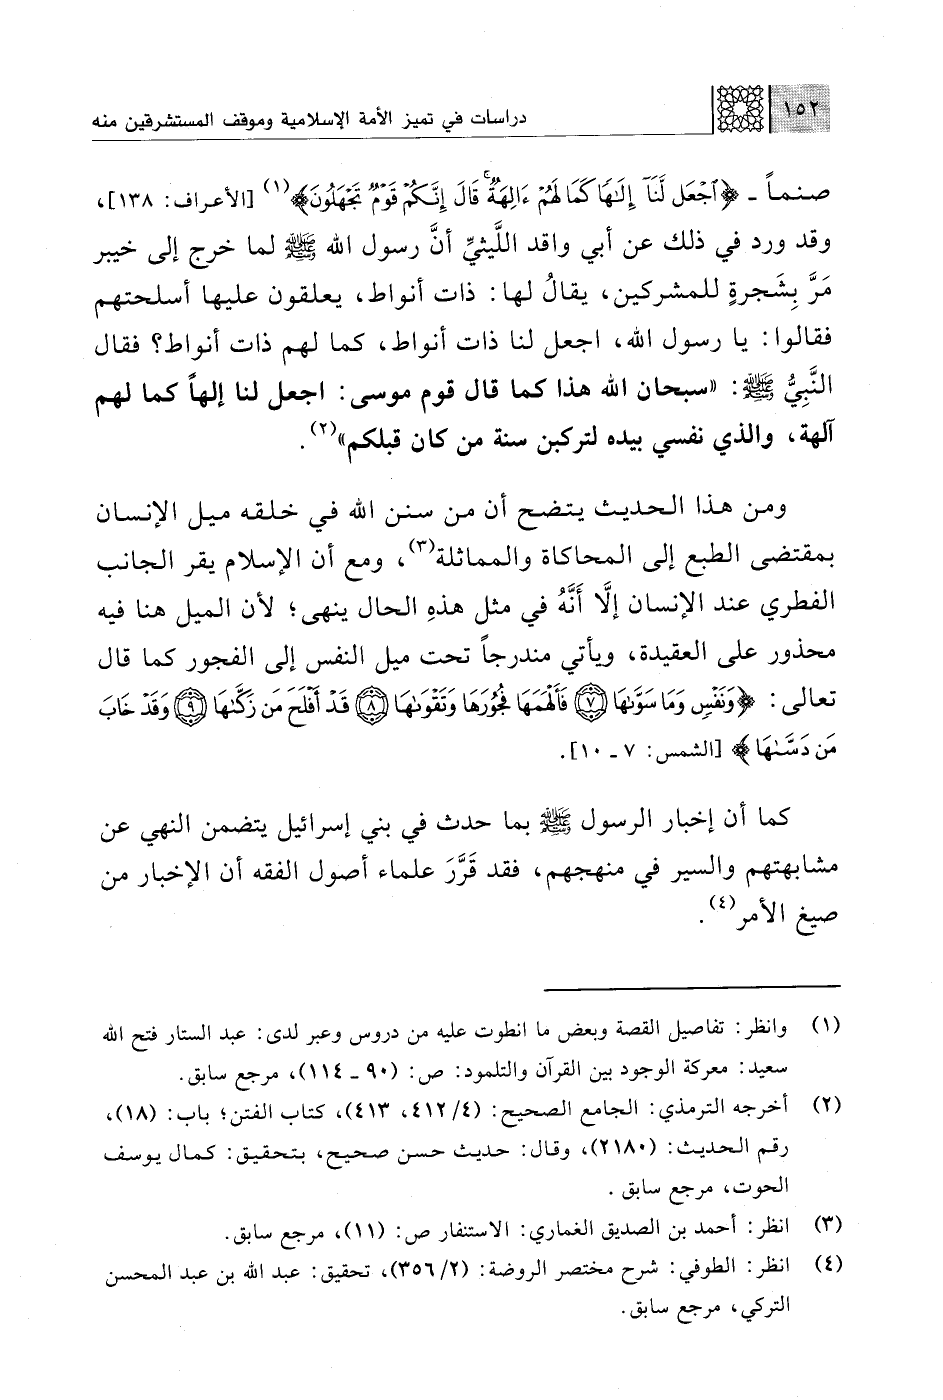 ١٥٢
دراسات في تميز الأمة الإسلامية وموقف المستشرقين منه
صنماً ـ ﴿ٱجْعَل لَّنَآ إِلَـٰهًا كَمَا لَهُمْ ءَالِهَةٌ ۚ قَالَ إِنَّكُمْ قَوْمٌ تَجْهَلُونَ﴾(١) [الأعراف: ١٣٨]،
وقد ورد في ذلك عن أبي واقد اللَّيثيِّ أنَّ رسول الله ﷺ لما خرج إلى خيبر
مَرَّ بِشَجرةٍ للمشركين، يقالُ لها: ذات أنواط، يعلقون عليها أسلحتهم
فقالوا: يا رسول الله، اجعل لنا ذات أنواط، كما لهم ذات أنواط؟ فقال
النَّبِيُّ ﷺ: «سبحان الله هذا كما قال قوم موسى: اجعل لنا إلهاً كما لهم
آلهة، والذي نفسي بيده لتركبن سنة من كان قبلكم»(٢).
ومن هذا الحديث يتضح أن من سنن الله في خلقه ميل الإنسان
بمقتضى الطبع إلى المحاكاة والمماثلة(٣)، ومع أن الإسلام يقر الجانب
الفطري عند الإنسان إلَّا أنَّهُ في مثل هذهِ الحال ينهى؛ لأن الميل هنا فيه
محذور على العقيدة، ويأتي مندرجاً تحت ميل النفس إلى الفجور كما قال
تعالى: ﴿وَنَفْسٍ وَمَا سَوَّىٰهَا ۝٧ فَأَلْهَمَهَا فُجُورَهَا وَتَقْوَىٰهَا ۝٨ قَدْ أَفْلَحَ مَن زَكَّىٰهَا ۝٩ وَقَدْ خَابَ
مَن دَسَّىٰهَا﴾ [الشمس: ٧ ـ ١٠].
كما أن إخبار الرسول ﷺ بما حدث في بني إسرائيل يتضمن النهي عن
مشابهتهم والسير في منهجهم، فقد قَرَّرَ علماء أصول الفقه أن الإخبار من
صيغ الأمر(٤).
(١) وانظر: تفاصيل القصة وبعض ما انطوت عليه من دروس وعبر لدى: عبد الستار فتح الله
سعيد: معركة الوجود بين القرآن والتلمود: ص: (٩٠ ـ ١١٤)، مرجع سابق.
(٢) أخرجه الترمذي: الجامع الصحيح: (٤/ ٤١٢، ٤١٣)، كتاب الفتن؛ باب: (١٨)،
رقم الحديث: (٢١٨٠)، وقال: حديث حسن صحيح، بتحقيق: كمال يوسف
الحوت، مرجع سابق.
(٣) انظر: أحمد بن الصديق الغماري: الاستنفار ص: (١١)، مرجع سابق.
(٤) انظر: الطوفي: شرح مختصر الروضة: (٢/ ٣٥٦)، تحقيق: عبد الله بن عبد المحسن
التركي، مرجع سابق.